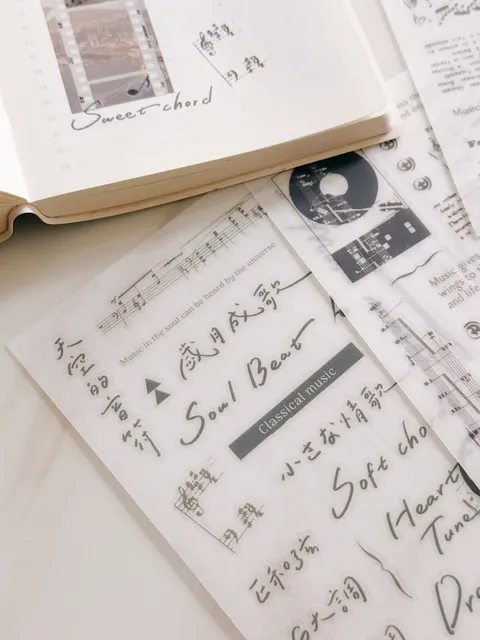 Sweet chord
Music in the soul can be heard by the universe
天空的音符
歲月成歌
Soul Beat
Classical music
小さな情歌
Soft cho
Heart
Tune
大調
Music gives
wings to t
and life
Music